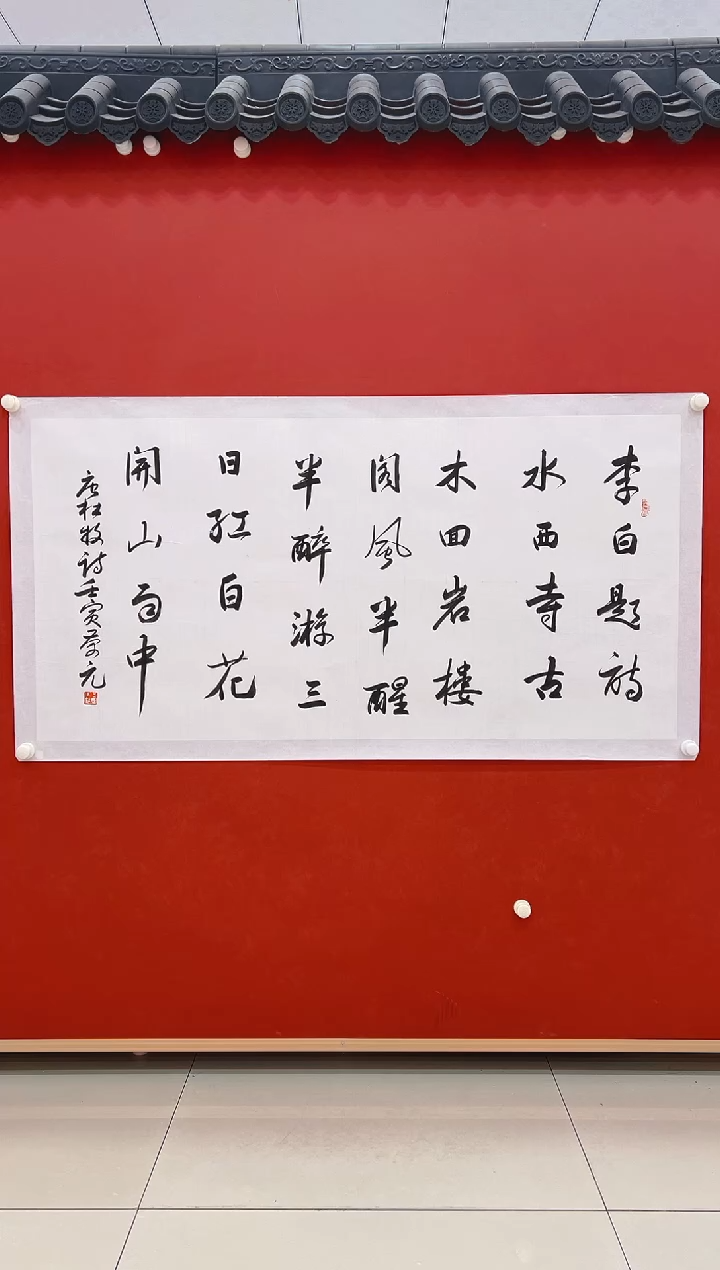 李白题诗
水西寺古
木回岩楼
阁风半醒
半醉游三
日红白花
開山雨中
唐杜牧诗壬寅元